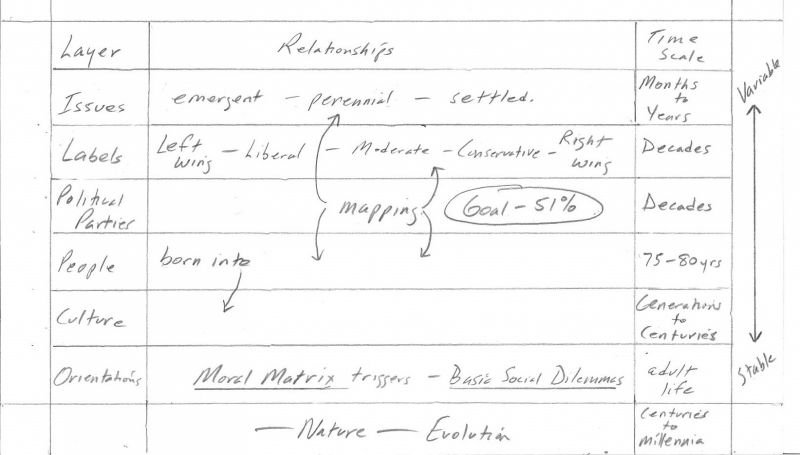 Layer Relationships Time Scale
Issues emergent – perennial – settled. Months to Years
Labels Left wing – Liberal – Moderate – Conservative – Right wing Decades
Political Parties mapping Goal – 51% Decades
People born into 75–80 yrs
Culture Generations to Centuries
Orientations Moral Matrix triggers – Basic Social Dilemmas adult life
— Nature — Evolution Centuries to millennia
Variable
Stable